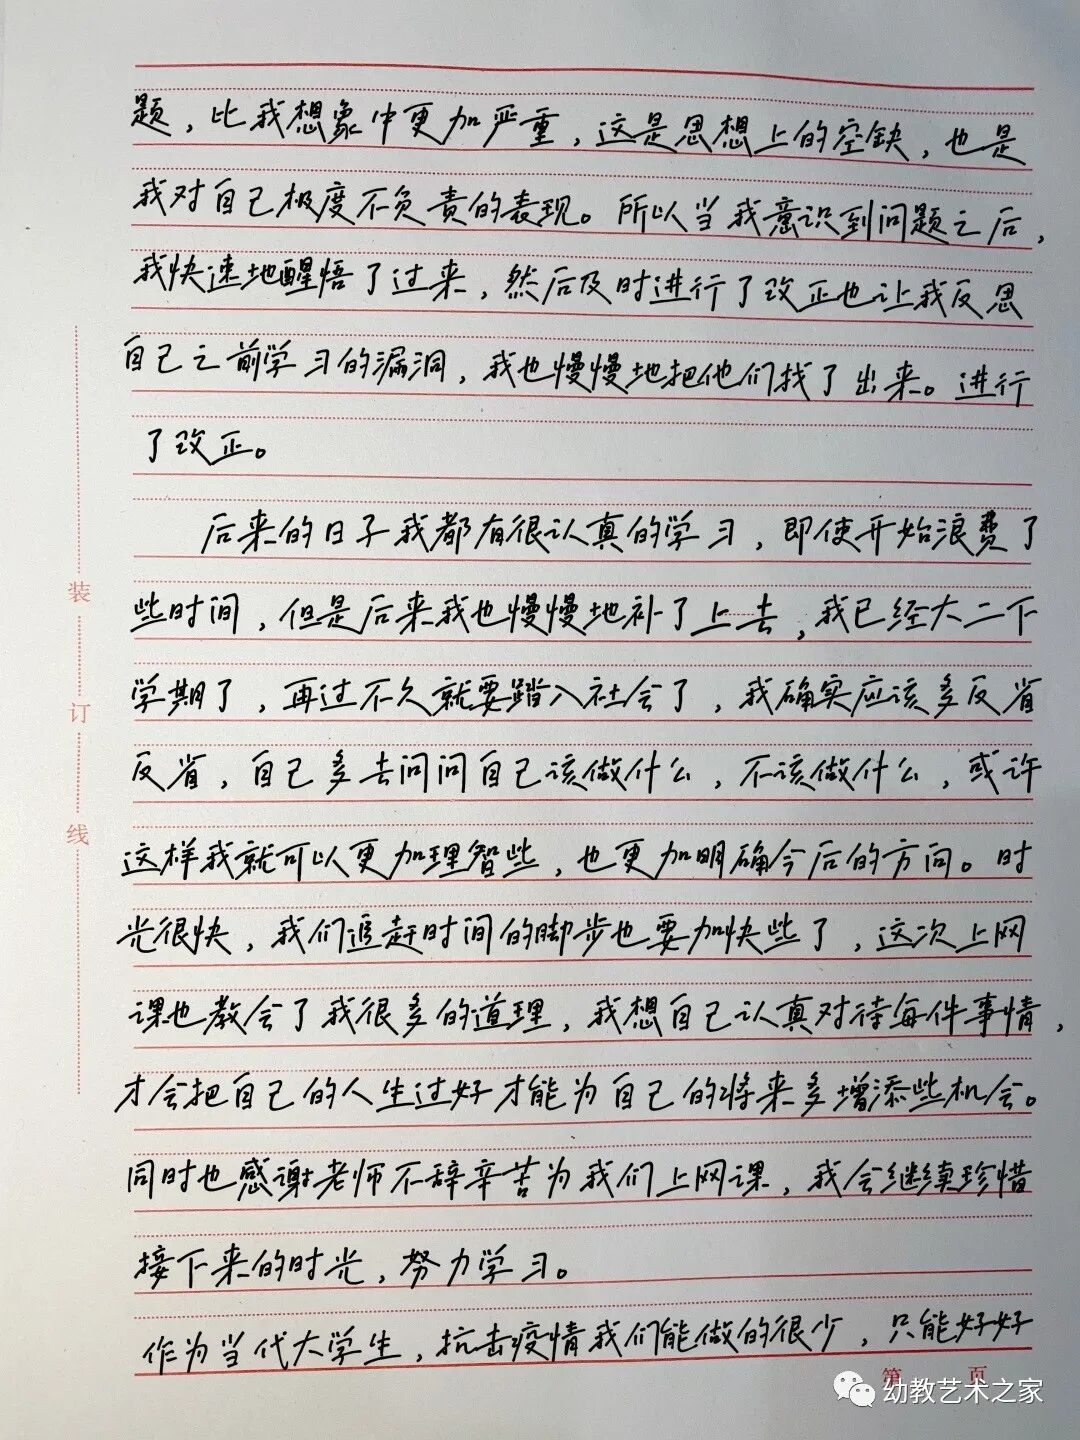 题，比我想象中更加严重，这是思想上的空缺，也是
我对自己极度不负责的表现。所以当我意识到问题之后，
我快速地醒悟了过来，然后及时进行了改正也让我反思
自己之前学习的漏洞，我也慢慢地把他们找了出来。进行
了改正。
后来的日子我都有很认真的学习，即使开始浪费了
些时间，但是后来我也慢慢地补了上去，我已经大二下
学期了，再过不久就要踏入社会了，我确实应该多反省
反省，自己多去问问自己该做什么，不该做什么，或许
这样我就可以更加理智些，也更加明确今后的方向。时
光很快，我们追赶时间的脚步也要加快些了，这次上网
课也教会了我很多的道理，我想自己认真对待每件事情，
才会把自己的人生过好才能为自己的将来多增添些机会。
同时也感谢老师不辞辛苦为我们上网课，我会继续珍惜
接下来的时光，努力学习。
作为当代大学生，抗击疫情我们能做的很少，只能好好
装
订
线
第 页
幼教艺术之家